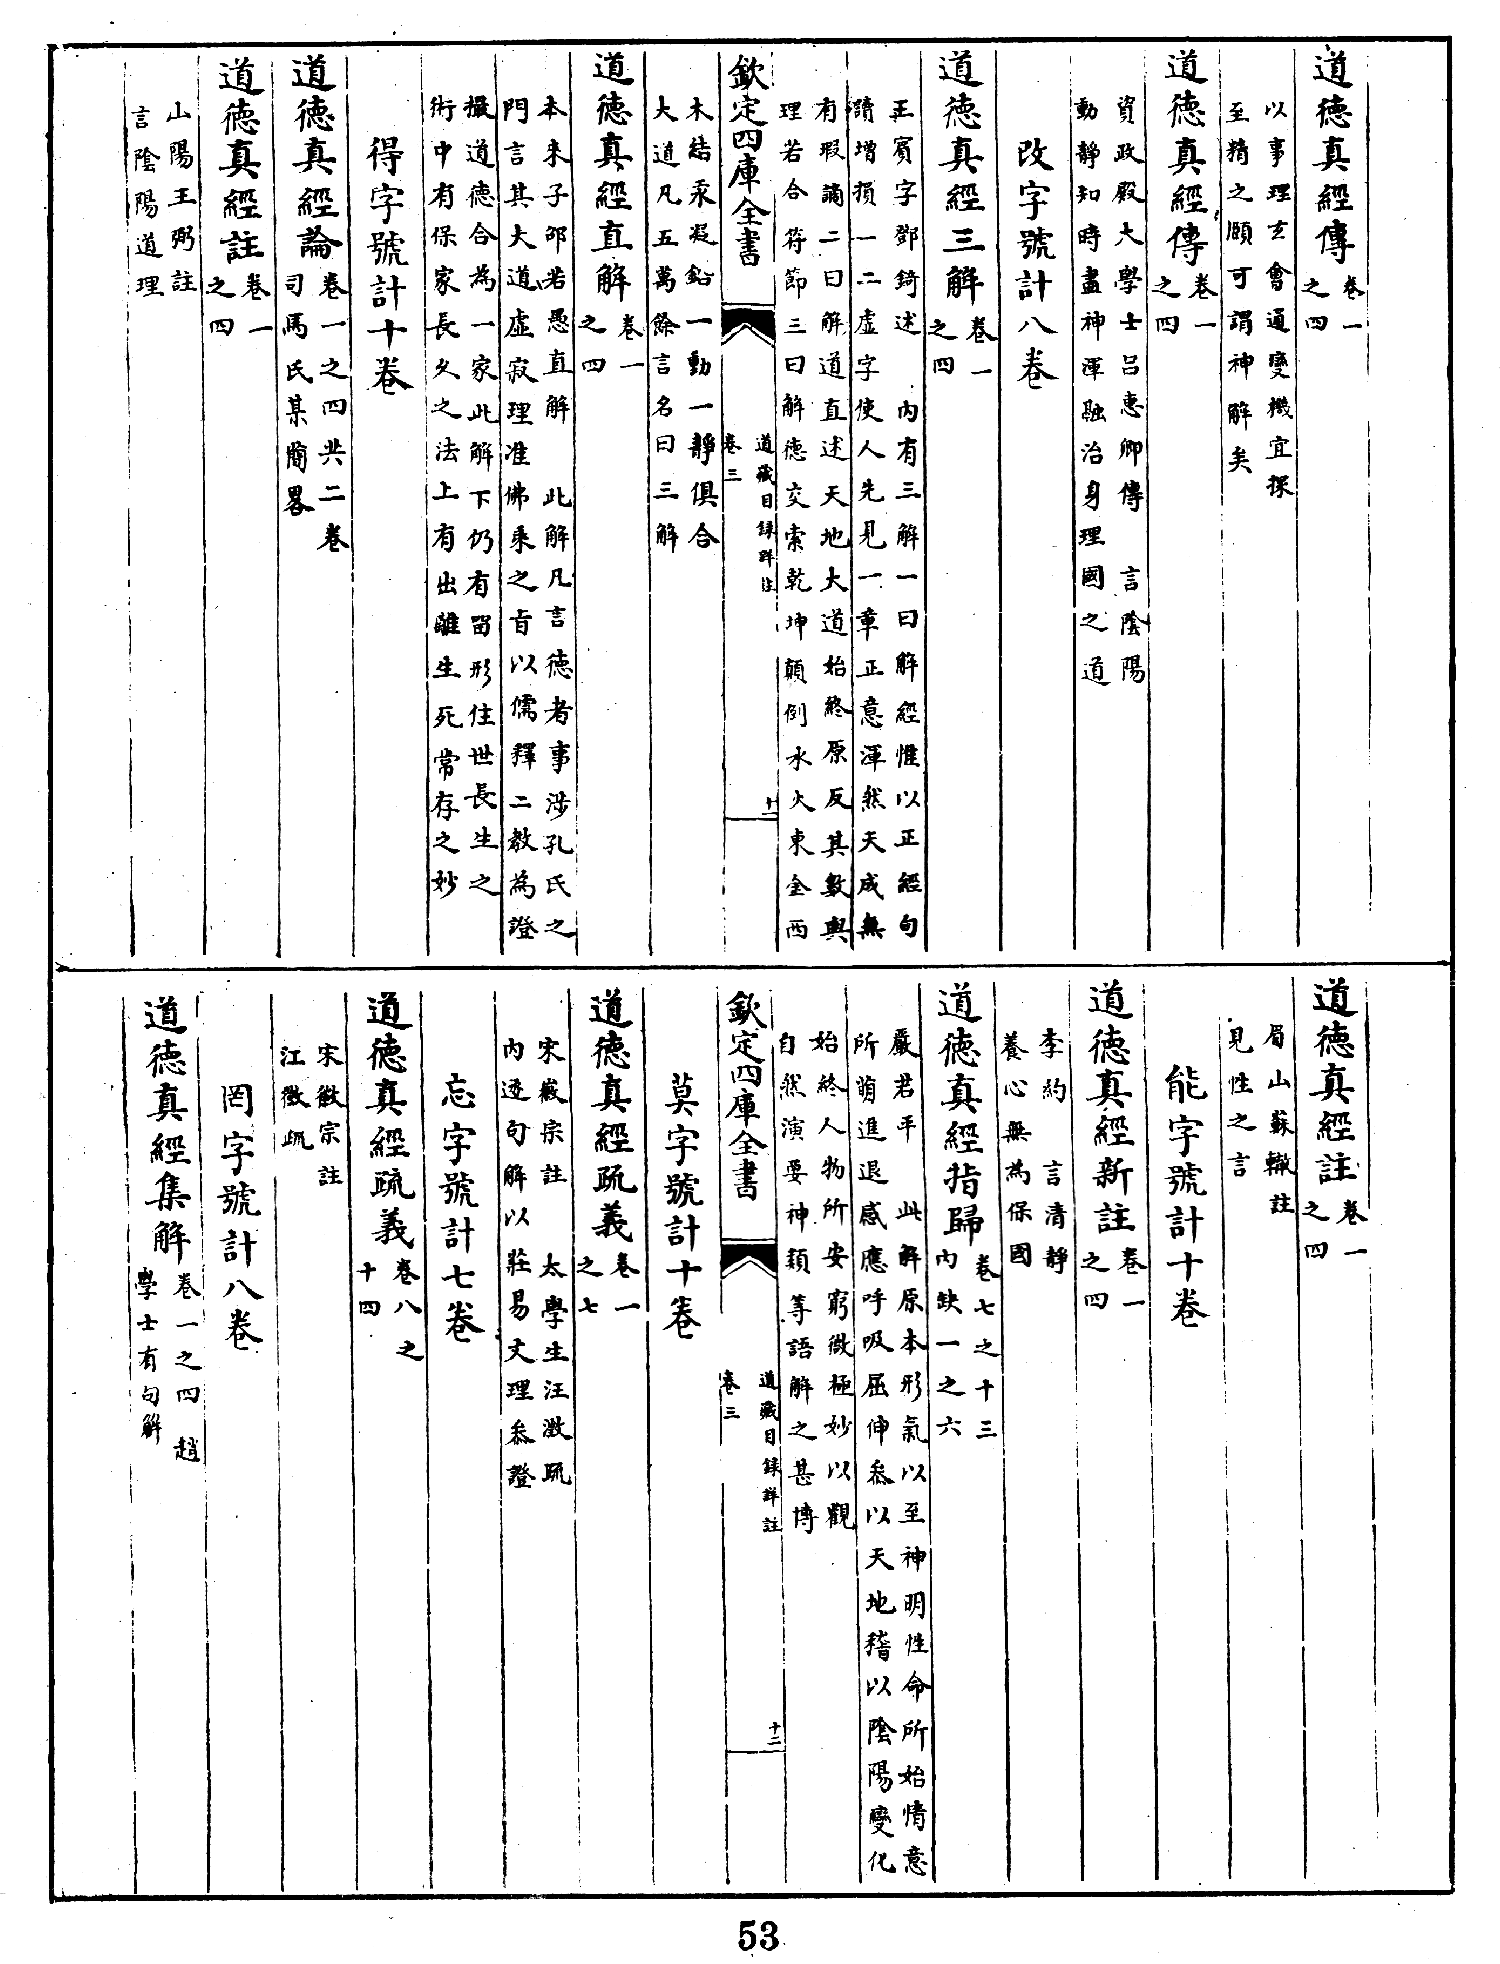 道德真經傳卷一之四
以事理玄會通變機宜探
至精之頤可謂神解矣
道德真經傳卷一之四
資政殿大學士呂惠卿傳　言陰陽
動靜知時盡神渾融治身理國之道
改字號計八卷
道德真經三解卷一之四
玉賓字鄧錡述　內有三解一曰解經惟以正經句
讀增損一二虛字使人先見一章正意渾然天成無
有瑕謫二曰解道直述天地大道始終原反其數與
理若合符節三曰解德交索乾坤顛倒水火東金西
欽定四庫全書
道藏目錄詳註
卷三
十一
木結汞凝鉛一動一靜俱合
大道凡五萬餘言名曰三解
道德真經直解卷一之四
本來子邵若愚直解　此解凡言德者事涉孔氏之
門言其大道虛寂理准佛乘之旨以儒釋二教為證
攝道德合為一家此解下仍有留形住世長生之
術中有保家長久之法上有出離生死常存之妙
得字號計十卷
道德真經論卷一之四共二卷
司馬氏某簡畧
道德真經註卷一之四
山陽王弼註
言陰陽道理
道德真經註卷一之四
眉山蘇轍註
見性之言
能字號計十卷
道德真經新註卷一之四
李約　言清靜
養心無為保國
道德真經指歸卷七之十三
內缺一之六
嚴君平　此解原本形氣以至神明性命所始情意
所萌進退感應呼吸屈伸叅以天地稽以陰陽變化
始終人物所安窮微極妙以觀
自然演要神類等語解之甚博
欽定四庫全書
道藏目錄詳註
卷三
十二
莫字號計十卷
道德真經疏義卷一之七
宋徽宗註　太學生江澂疏
內逐句解以莊易文理叅證
忘字號計七卷
道德真經疏義卷八之十四
宋徽宗註
江徵疏
罔字號計八卷
道德真經集解卷一之四　趙
學士有句解
53